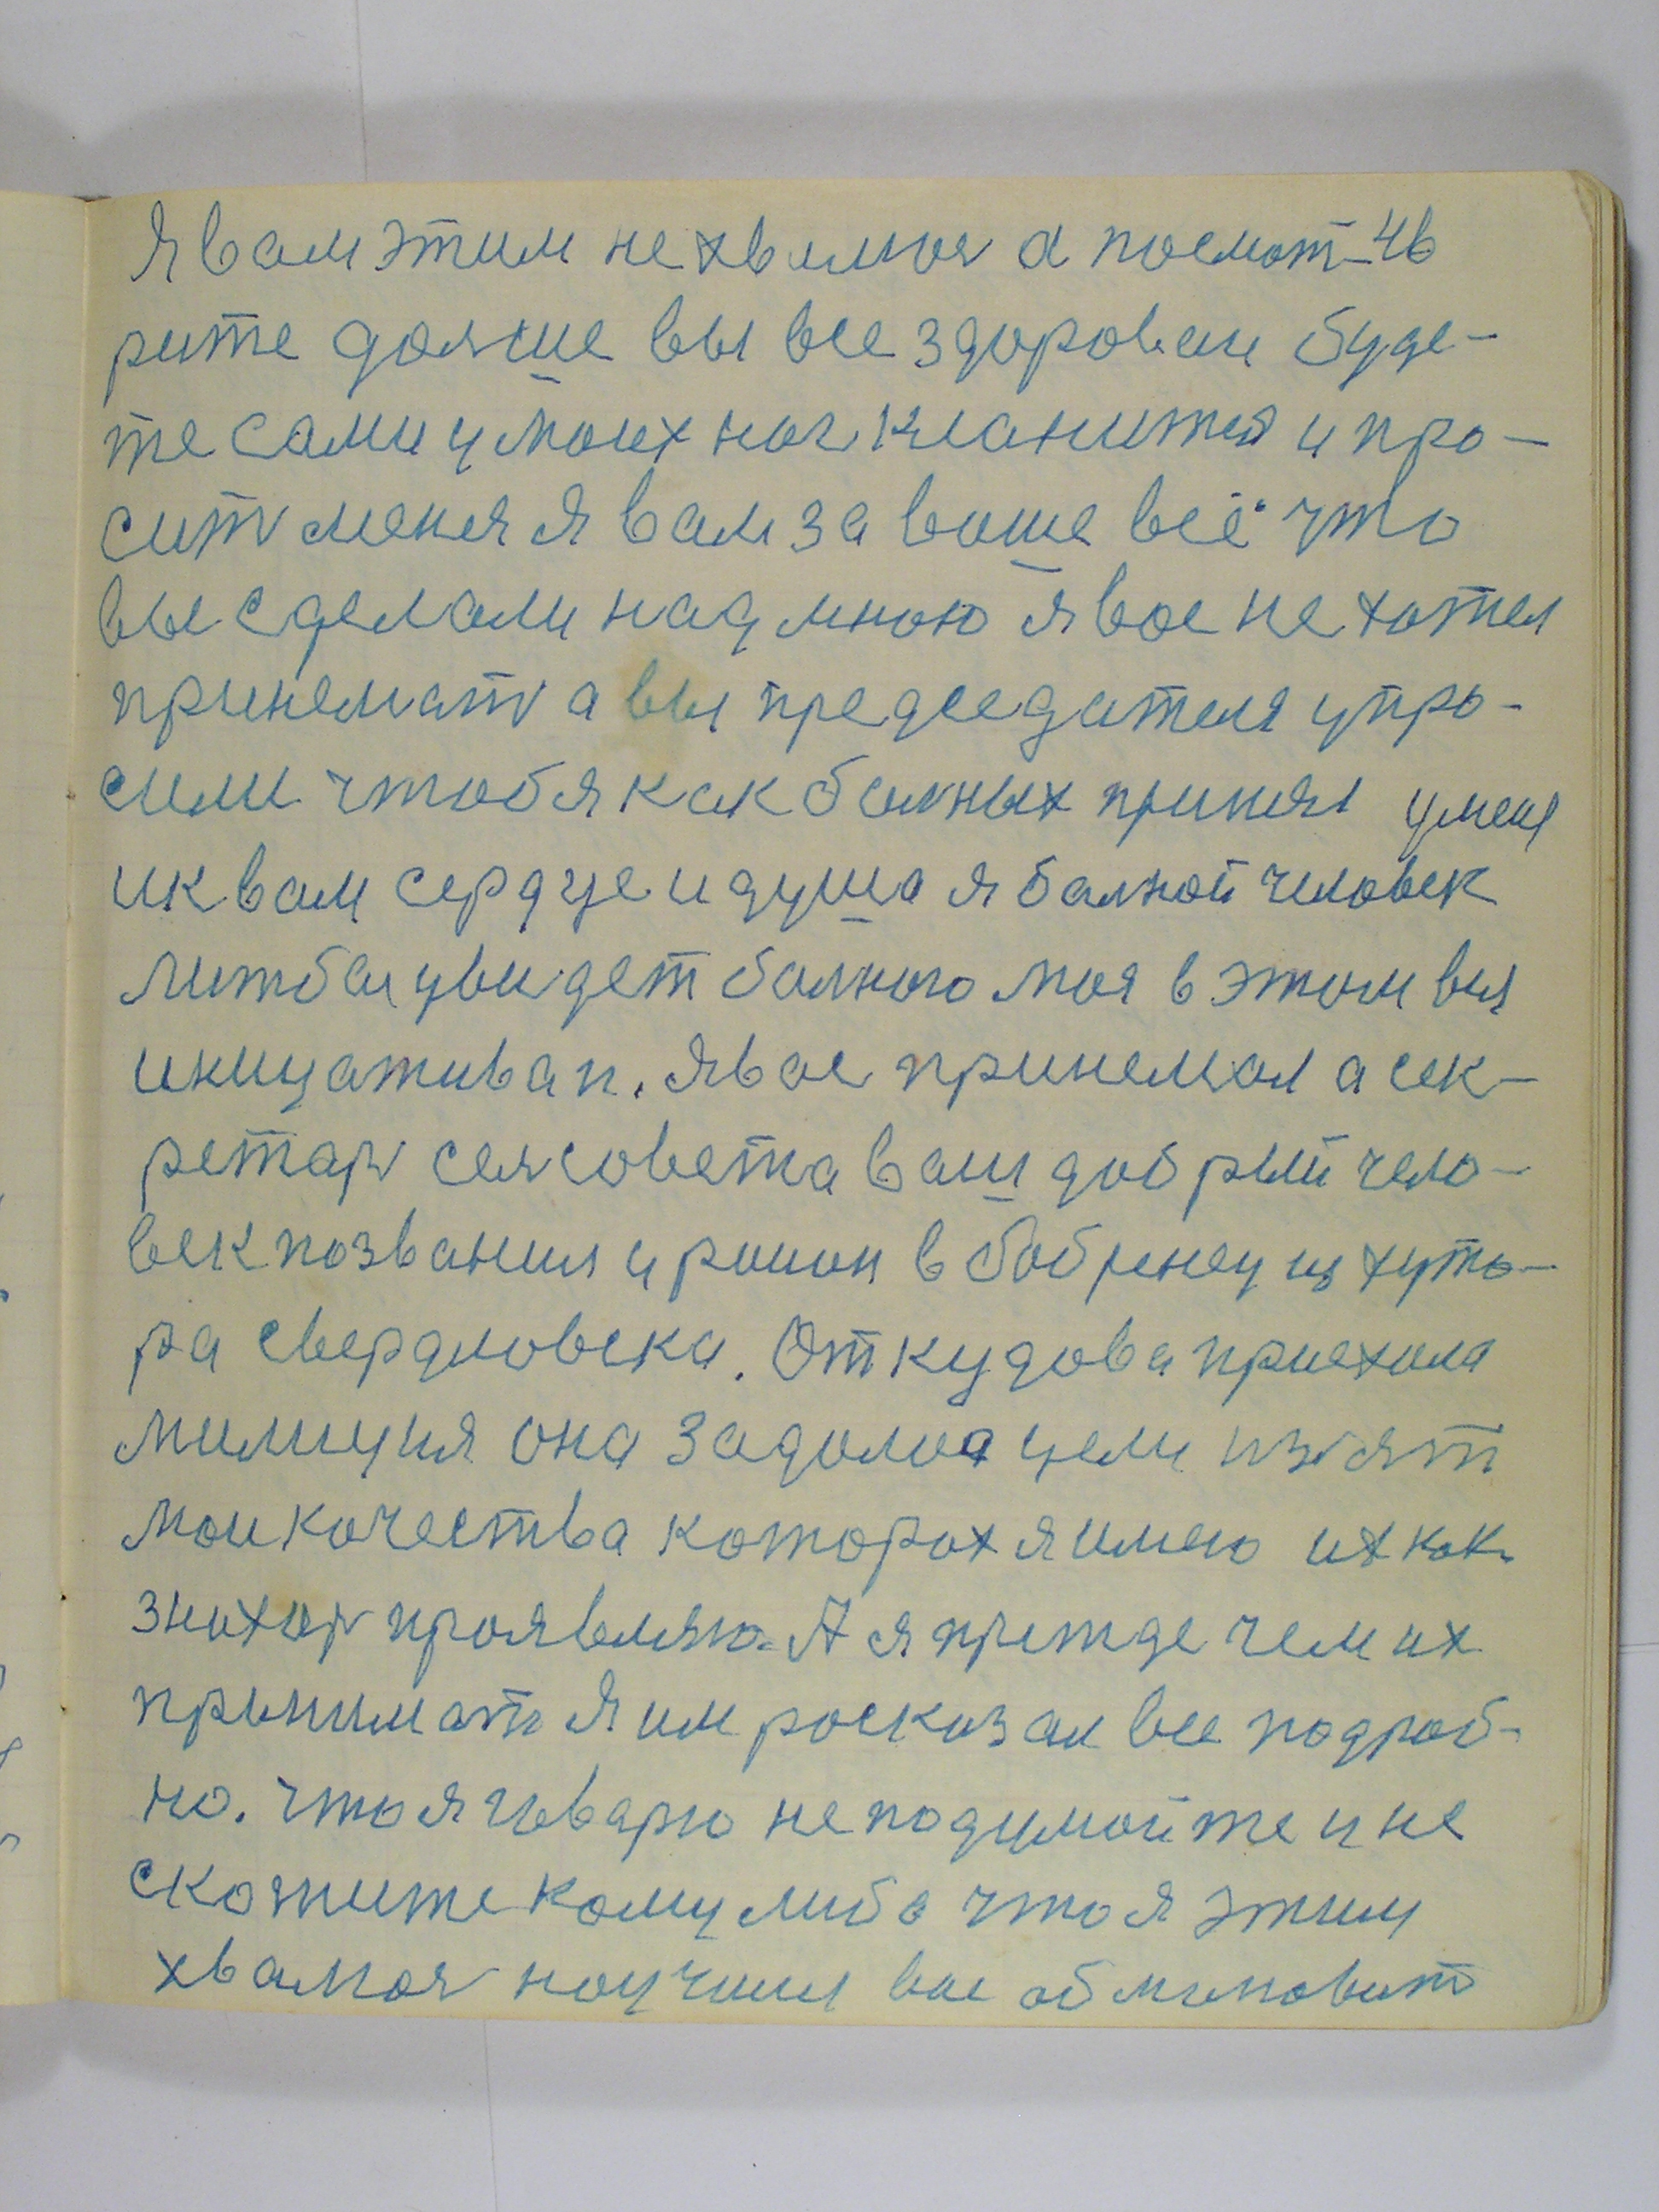 Я вам этим не хвалюся а посмот- 46
рите дольше вы все здороваи буде-
те сами у моих ног кланится и про-
сить меня я вам за ваше всё что
вы сделали над мною я вас не хотел
принемать а вы председателя упро-
сили чтоб я как балных принял у меня
и к вам сердце и душа я балной человек
лижбы увидет балного моя в этом вся
инициатива п. Я вас принемал а сек-
ретарь сельсовета ваш добрый чело-
век позванил у район в бобренец из хуто-
ра свердловска. Откудова приехала
милиция она задалас цели изят
мои качества которох я имею их как
знахарь проявляю. А я прежде чем их
принимать Я им росказал все подроб-
но. что я говарю не подумойте и не
скажите кому либо что я этим
хвалюся научил вас